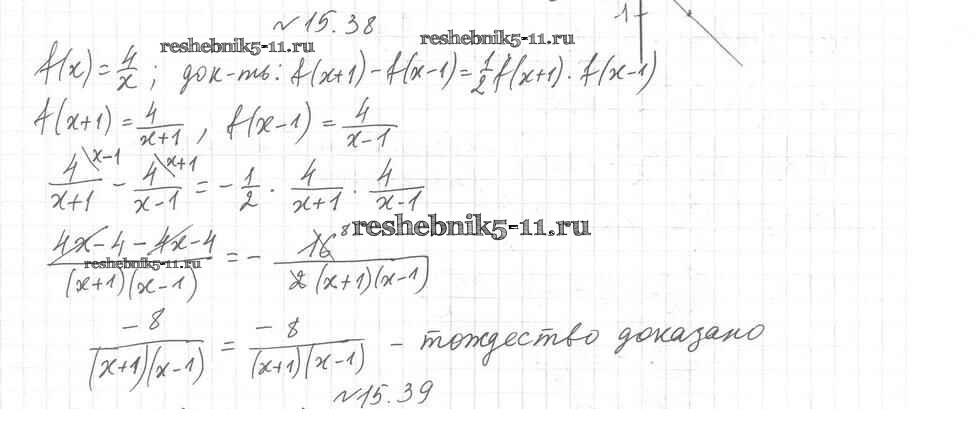 1
№15.38
reshebnik5-11.ru reshebnik5-11.ru
f(x) = 4/x ; док-ть: f(x+1) - f(x-1) = 1/2 f(x+1) · f(x-1)
f(x+1) = 4/(x+1) , f(x-1) = 4/(x-1)
4\x-1/(x+1) - 4\x+1/(x-1) = - 1/2 · 4/(x+1) · 4/(x-1)
reshebnik5-11.ru
(4x - 4 - 4x - 4)/((x+1)(x-1)) = - 16 8/(2 (x+1)(x-1))
reshebnik5-11.ru
-8/((x+1)(x-1)) = -8/((x+1)(x-1)) - тождество доказано
№15.39